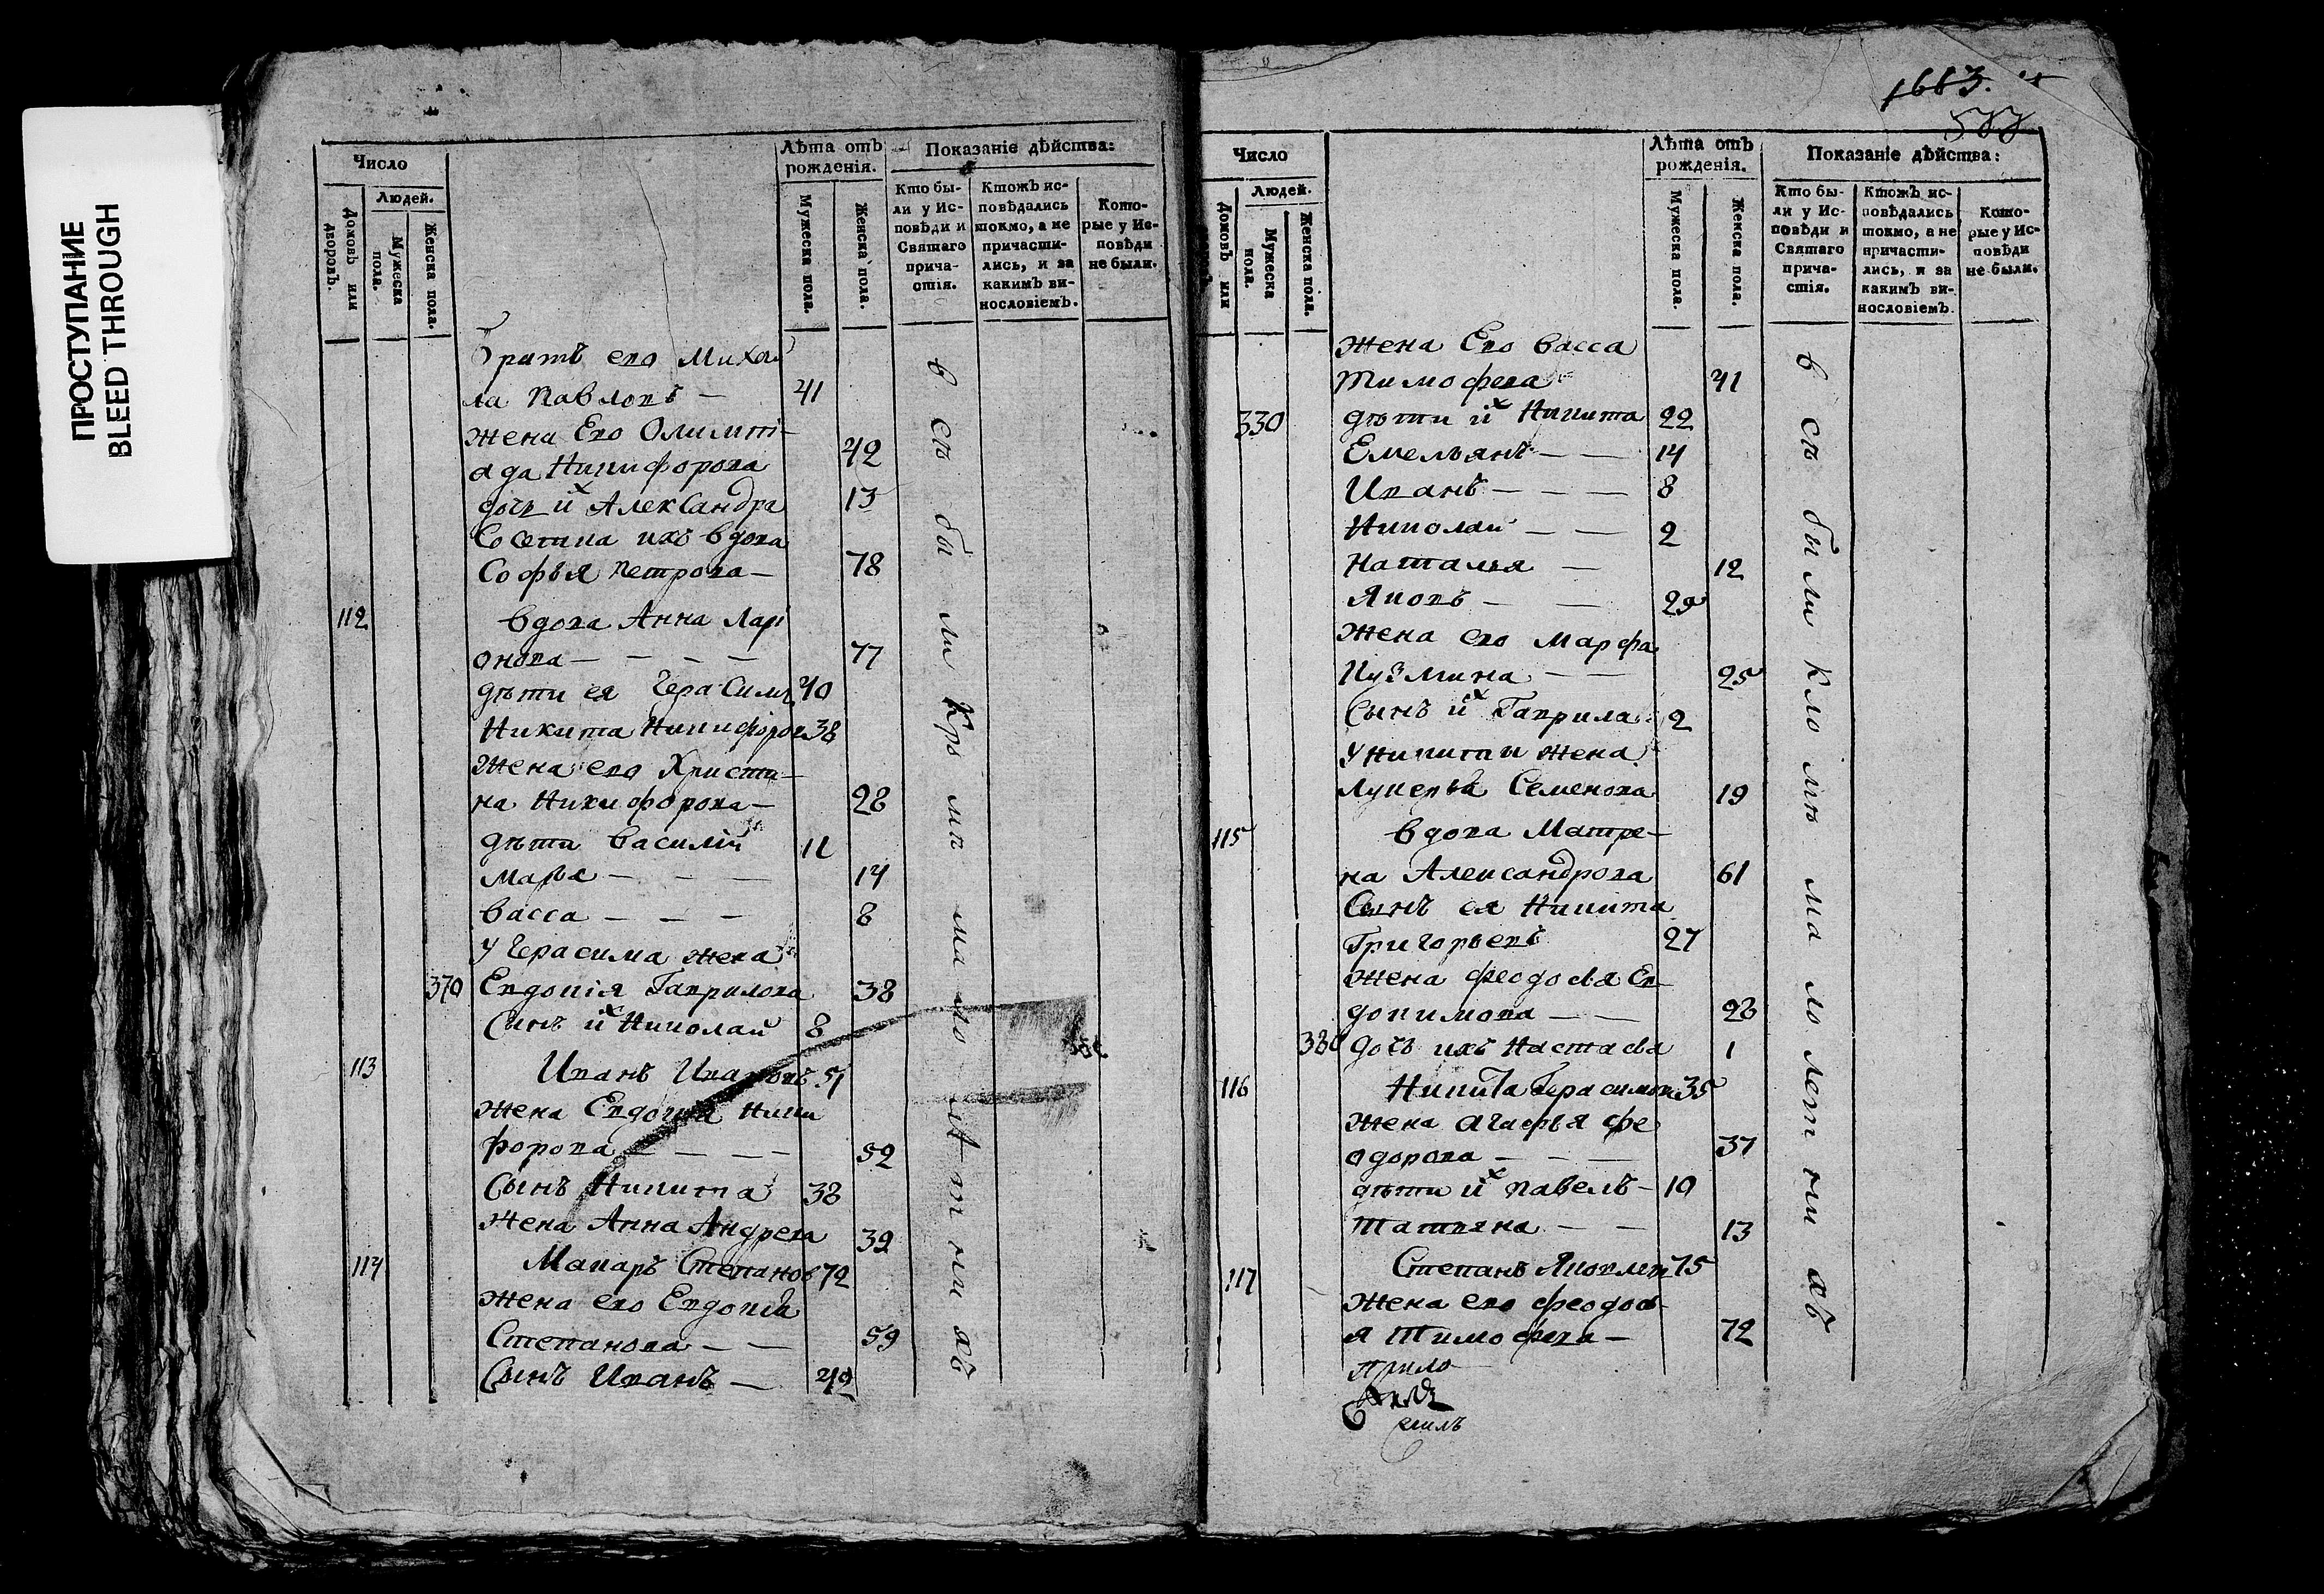 ПРОСТУПАНИЕ
BLEED THROUGH
Число
Людей.
Домовъ или дворовъ.
Мужеска пола.
Женска пола.
Лѣта отъ рожденія.
Мужеска пола.
Женска пола.
Показаніе дѣйства:
Кто были у Исповѣди и Святаго причастія.
Ктожъ исповѣдались токмо, а не причастились, и за какимъ винословіемъ.
Которые у Исповѣди не были.
братъ его Михай
ла Павловъ — 41
жена Его Олимпі-
ада Никифорова 42
дочь их Александра 13
Сосетка ихъ вдова
Софья Петрова — 78
112 вдова Анна Лари
онова — — — — 77
дѣти ея Герасимъ 40
Никита Никифоров 38
Жена его Христи-
на Никифорова — 28
дѣти Василій 11
Марья — — — 14
Васса — — — 8
у Герасима жена
370 Евдокія Гаврилова 38
Сынъ их Николай 8
113 Иванъ Ивановъ 51
жена Евдокия Ники
форова — — — — 52
Сынъ Никита 38
жена Анна Андреева 39
114 Макаръ Степанов 72
жена его Евдокия
Степанова — — 59
Сынъ Иванъ — 49
всѣ были кромѣ малолѣтнихъ
1663.
Число
Людей.
Домовъ или
Мужеска пола.
Женска пола.
Лѣта отъ рожденія.
Мужеска пола.
Женска пола.
Показаніе дѣйства:
Кто были у Исповѣди и Святаго причастія.
Ктожъ исповѣдались токмо, а не причастились, и за какимъ винословіемъ.
Которые у Исповѣди не были.
жена Его Васса
Тимофева 41
330 дѣти их Никита 22
Емельянъ — — 14
Иванъ — — — 8
Николай — — 2
Наталья — 12
Яковъ — — 29
жена его Марфа
Кузмина — — 25
Сынъ их Гаврила 2
у Никиты жена
Лукерья Семенова 19
115 вдова Матре-
на Александрова 61
Сынъ ея Никита
Григорьевъ 27
жена Феодосья Ев-
докимова — — 28
380 дочь ихъ Настасья 1
116 Никита Герасимов 35
жена Агафья Фе
одорова — — — 37
дѣти их Павелъ — 10
Татьяна — — 13
117 Степанъ Яковлев 75
жена его Феодось-
я Тимофева — 72